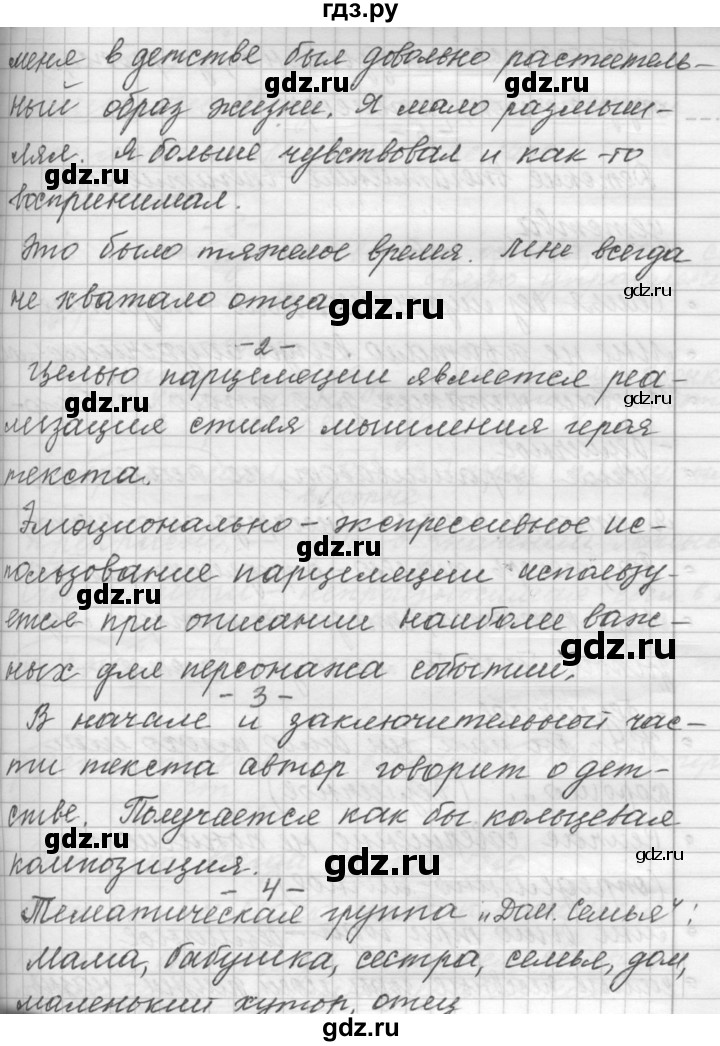 гдз.ру
меня в детстве был довольно раститель-
gdz.ru gdz.ru
ный образ жизни. Я мало размыш-
лял. Я больше чувствовал и как-то
gdz.ru
воспринимал.
Это было тяжелое время. Мне всегда
не хватало отца
gdz.ru gdz.ru
-2-
Целью парцеляции является реа-
gdz.ru gdz.ru
лизация стиля мышления героя
текста.
Эмоционально-экспрессивное ис-
gdz.ru
пользование парцеляции использу-
gdz.ru
ется при описании наиболее важ-
gdz.ru
ных для персонажа событий.
-3-
В начале и заключительной час-
ти текста автор говорит о дет-
gdz.ru gdz.ru
стве. Получается как бы кольцевая
gdz.ru
композиция.
gdz.ru gdz.ru
-4-
Тематическая группа „Дом. Семья":
Мама, бабушка, сестра, семья, дом,
gdz.ru gdz.ru
маленький хутор, отец
гдз.ру